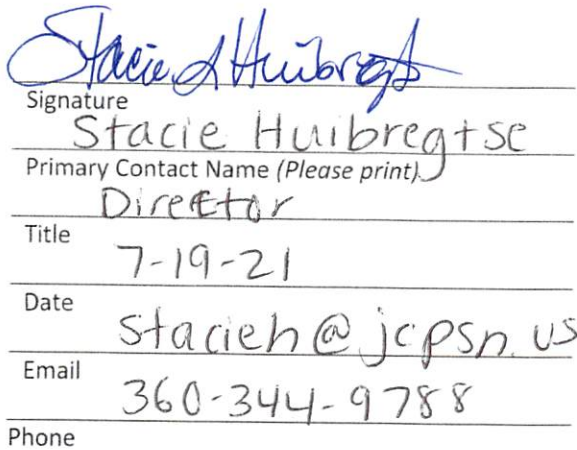 Stacie L Huibregts
Signature
Stacie Huibregtse
Primary Contact Name (Please print)
Director
Title
7-19-21
Date
stacieh@jcpsn.us
Email
360-344-9788
Phone